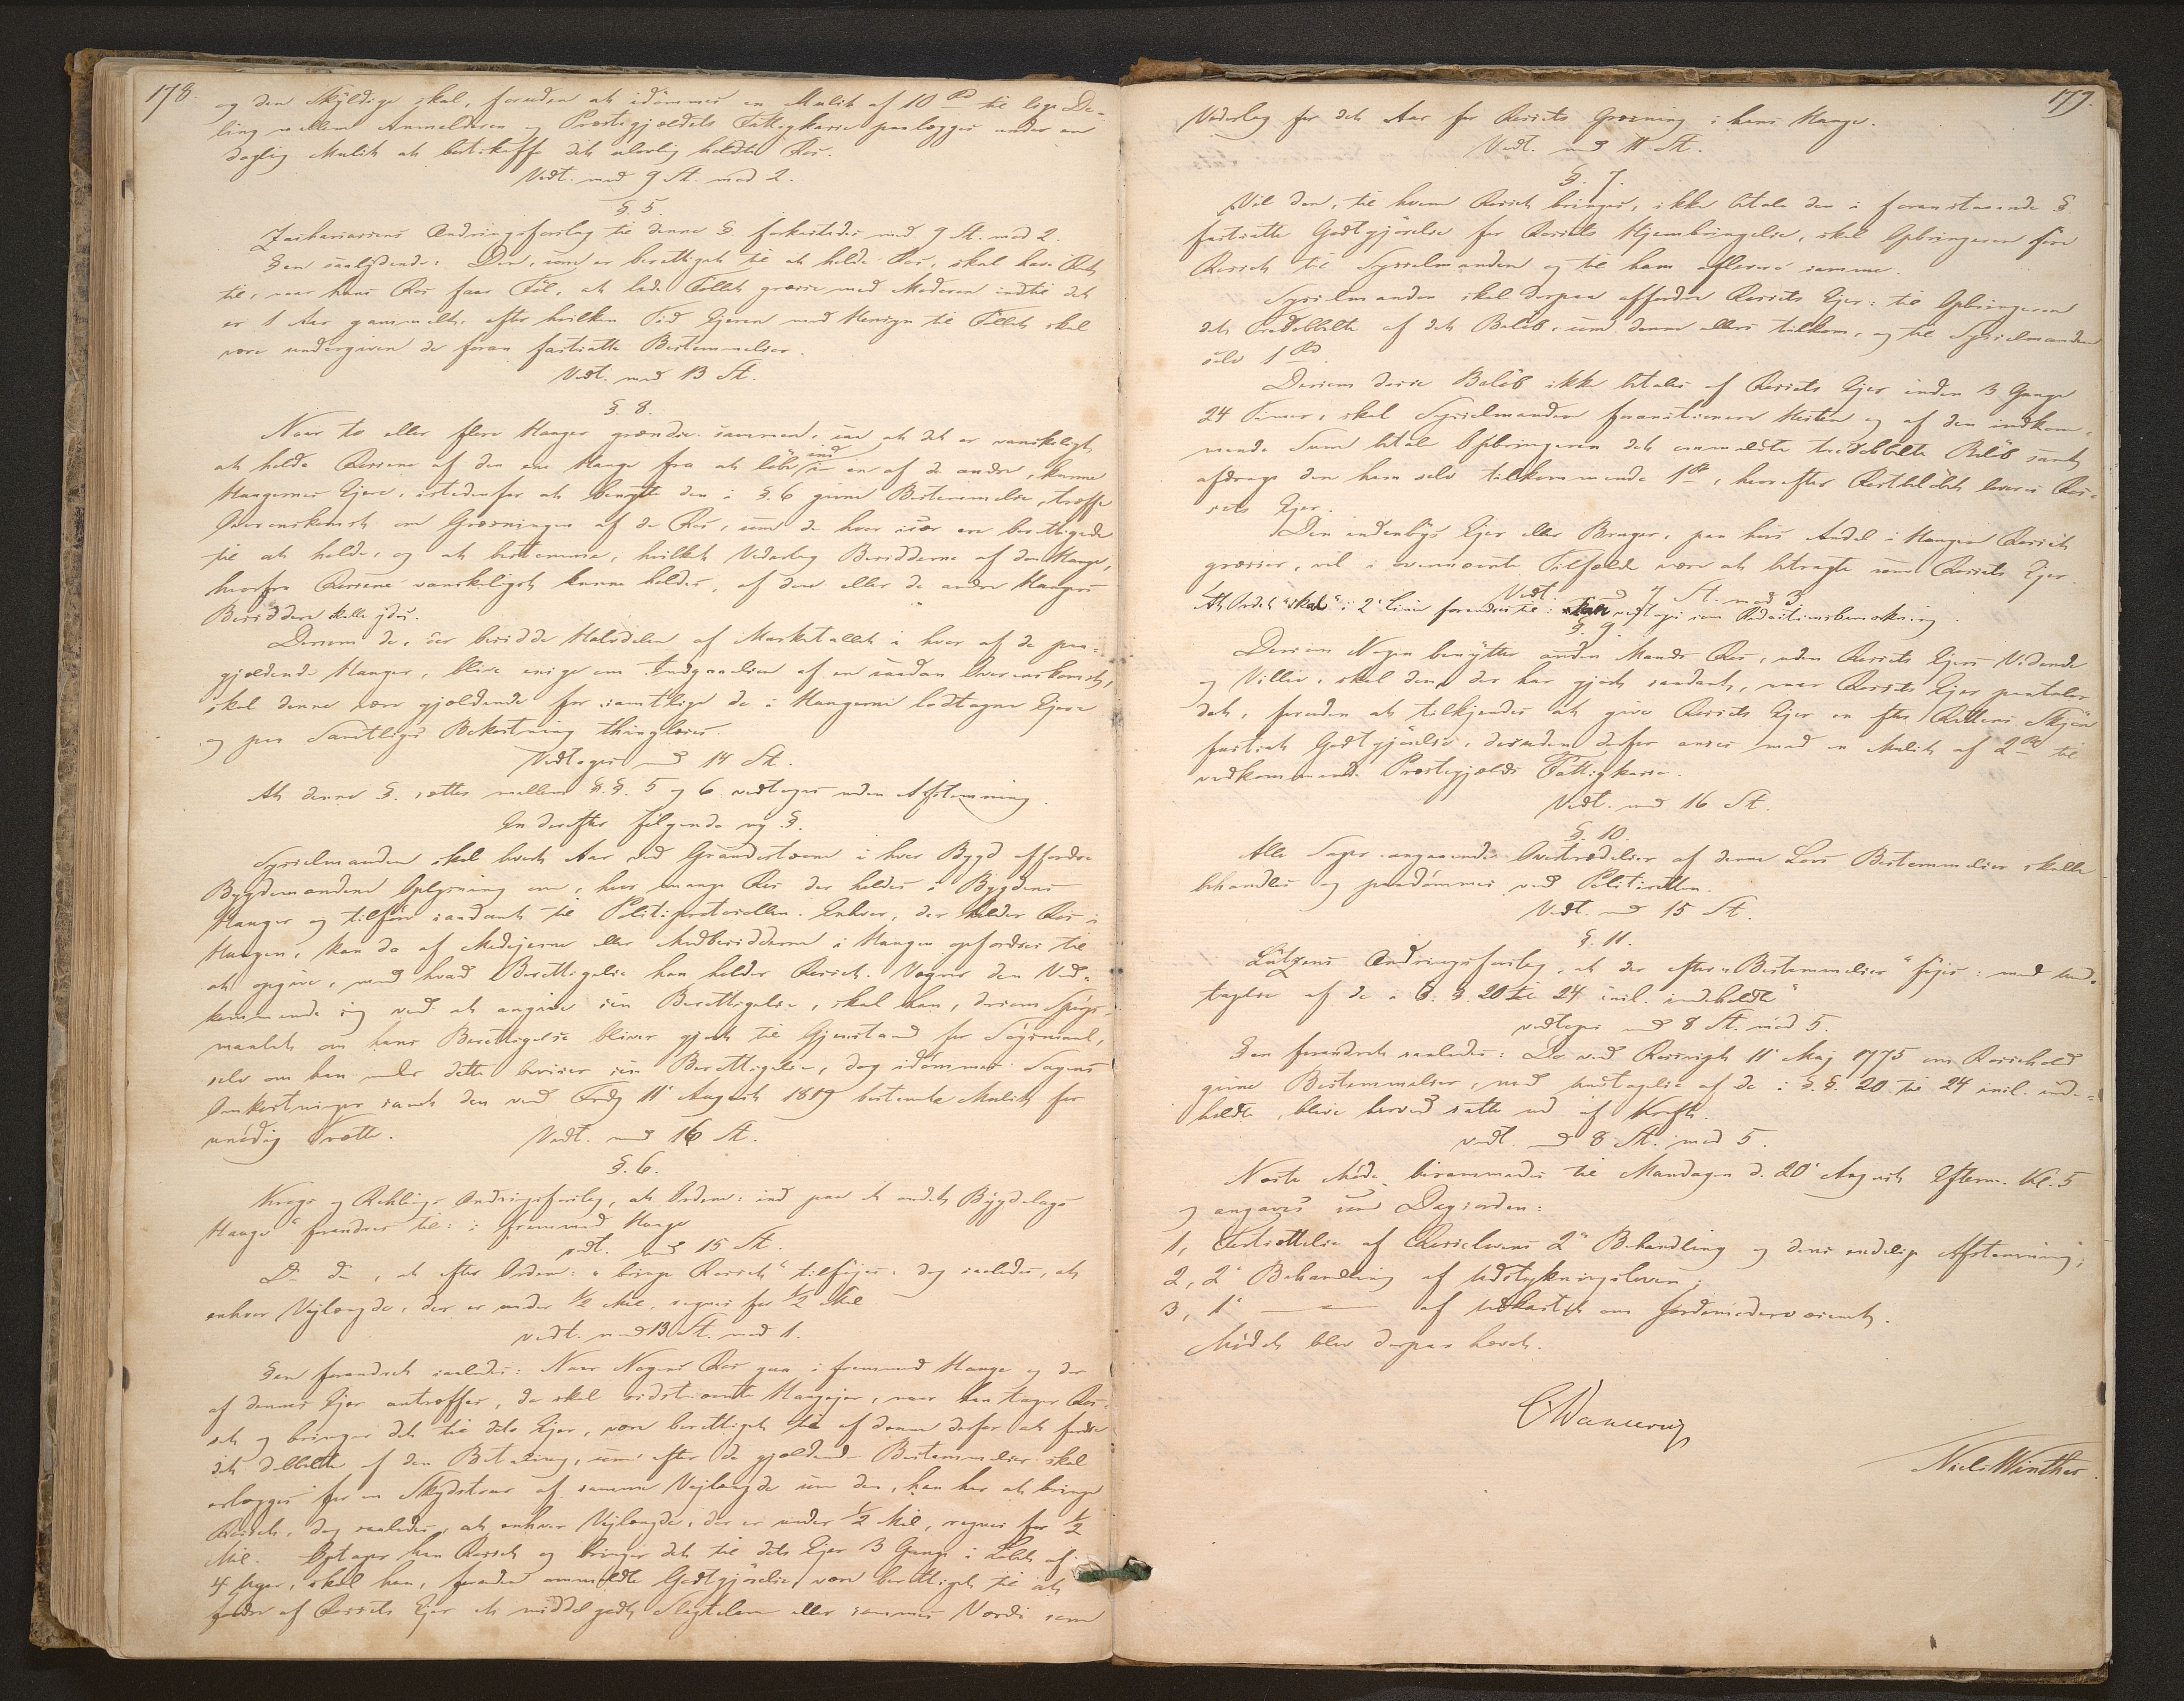 178.
og den Skyldige skal, foruden at idømmes en Mulct af 10 Rd til lige De-
ling mellem Anmelderen og Præstegjældets Fattigkasse paalægges under en
daglig Mulct at bortskaffe det ulovlig holdte Ros.
Vedt. med 9 St. mod 2.
§. 5.
Zachariasens Ændringsforslag til denne §. forkastedes med 9 St. mod 2.
Den saalydende: Den, som er berettiget til at holde Ros, skal have Ret
til, naar hans Ros faar Føl, at lade Føllet græsse med Moderen indtil det
er 1 Aar gammelt, efter hvilken Tid Ejeren med Hensyn til Føllet skal
være undergiven de foran fastsatte Bestemmelser.
Vedt. med 13 St.
§. 8.
Naar to eller flere Hauger grændse sammen, saa at det er vanskeligt
at holde Rossene af den ene Hauge fra at løbe ind i en af de andre, kunne
Haugernes Ejere, istedenfor at benytte den i §. 6 givne Bestemmelse, træffe
Overenskomst om Græsningen af de Ros, som de hver især ere berettigede
til at holde, og at bestemme, hvilket Vederlag Besidderne af den Hauge,
hvorfra Rossene vanskeligst kunne holdes, af den eller de andre Haugers
Besiddere skulle ydes.
Dersom de, der besidde Halvdelen af Marketallet i hver af de paa-
gjældende Hauger, blive enige om Indgaaelsen af en saadan Overenskomst,
skal denne være gjældende for samtlige de i Haugerne lodtagne Ejere
og paa Samtliges Bekostning thinglæses.
Vedtoges med 14 St.
At denne §. sættes mellem §.§. 5 og 6 vedtoges uden Afstemning.
En derefter følgende ny §.
Sysselmanden skal hvert Aar ved Grandestævne i hver Bygd affordre
Bygdemændene Oplysning om, hvor mange Ros der holdes i Bygdens
Hauger og tilføre saadant til Politiprotocollen. Enhver, der holder Ros i
Haugen, kan da af Medejerne eller Medbesidderne i Haugen opfordres til
at opgive, med hvad Berettigelse han holder Rosset. Vægrer den Ved-
kommende sig ved at angive sin Berettigelse, skal han, dersom Spørgs-
maalet om hans Berettigelse bliver gjort til Gjenstand for Søgsmaal,
selv om han under dette beviser sin Berettigelse, dog idømmes Sagens
Omkostninger samt den ved Frdg 11' August 1819 bestemte Mulct for
unødig Trætte. Vedt. med 16 St.
§. 6.
Krogs og Rehlings Ændringsforslag, at Ordene: ind paa et andet Bygdelags
Hauge" forandres til: i fremmed Hauge
vedt. med 15 St.
Do do, at efter Ordene: "bringe Rosset" tilføjes: dog saaledes, at
enhver Vejlængde, der er under 1/2 Mil, regnes for 1/2 Mil
vedt. med 13 St. mod 1.
Den forandret saaledes: Naar Nogens Ros gaa i fremmed Hauge og der
af dennes Ejer antræffes, da skal sidstnævnte Haugejer, naar han tager Ros-
set og bringer det til dets Ejer, være berettiget til af denne derfor at fordre
det dobbelte af den Betaling, som efter de gjældende Bestemmelser skal
erlægges for en Skydstour af samme Vejlængde som den, han har at bringe
Rosset, dog saaledes, at enhver Vejlængde, der er under 1/2 Mil, regnes for 1/2
Mil. Optager han Rosset og bringer det til dets Ejer 3 Gange i Løbet af
4 Uger, skal han, foruden ommeldte Godtgjørelse, være berettiget til at
fordre af Rossets Ejer et middel godt Slagtelam eller sammes Værdi som
179.
Vederlag for det Aar for Rossets Græsning i hans Hauge.
Vedt. med 11 St.
§. 7.
Vil den, til hvem Rosset bringes, ikke betale den i foranstaaende §
fastsatte Godtgjørelse for Rossets Hjembringelse, skal Opbringeren føre
Rosset til Sysselmanden og til ham aflevere samme.
Sysselmanden skal derpaa affordre Rossets Ejer: til Opbringeren
det tredobbelte af det Beløb, som denne ellers tilkom, og til Sysselmanden
selv 1 Rd.
Dersom disse Beløb ikke betales af Rossets Ejer inden 3 Gange
24 Timer, skal Sysselmanden foranstaltere Hesten og af den indkom-
mende Sum betale Opbringeren det ommeldte tredobbelte Beløb samt
afdrage den ham selv tilkommende 1 Rd, hvorefter Restbeløbet leveres Ros-
sets Ejer.
Den indenbygds Ejer eller Bruger, paa hvis Andel i Haugen Rosset
græsser, vil i ovennævnte Tilfælde være at betragte som Rossets Ejer.
Vedt. med 7 St. mod 3.
At Ordet "skal" i 2' Linie forandres til: kan vedtoges som Redactionsbemærkning.
§. 9.
Dersom Nogen benytter anden Mands Ros, uden Rossets Ejers Vidende
og Villie, skal den, der har gjort saadant, naar Rossets Ejer paataler
det, foruden at tilkjendes at give Rossets Ejer en efter Rettens Skjøn
fastsat Godtgjørelse, desuden derfor anses med en Mulct af 2 Rd til
vedkommende Præstegjælds Fattigkasse.
Vedt. med 16 St.
§. 10.
Alle Sager angaaende Overtrædelser af denne Lovs Bestemmelser skulle
behandles og paadømmes ved Politiretten.
Vedt. med 15 St.
§. 11.
Lützens Ændringsforslag, at der efter "Bestemmelser" føjes: med Und-
tagelse af de i §. §. 20 til 24 incl. indeholdte"
vedtoges med 8 St. mod 5.
Den forandret saaledes: De ved Rescript 11' Maj 1775 om Rossehold
givne Bestemmelser, med Undtagelse af de i §.§. 20 til 24 incl. inde-
holdte, blive herved satte ud af Kraft.
vedt. med 8 St. mod 5.
Næste Møde berammedes til Mandagen d. 20' August Efterm. Kl. 5
og angaves som Dagsorden:
1, Fortsættelse af Rosselovens 2' Behandling og dens endelige Afstemning;
2, 2' Behandling af Udstykningsloven;
3, 1' — — af Udkastet om Jordemodervæsenet.
Mødet blev derpaa hævet.
Niels Winther.